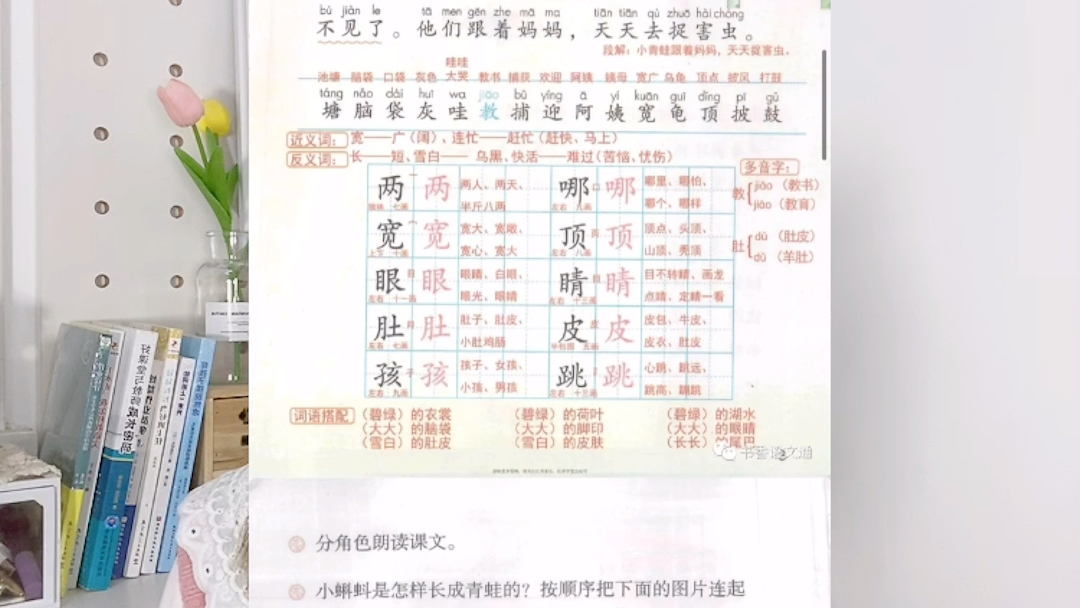 bú jiàn le tā men gēn zhe mā ma tiān tiān qù zhuō hài chóng
不见了。他们跟着妈妈，天天去捉害虫。
段解：小青蛙跟着妈妈，天天捉害虫。
池塘 脑袋 口袋 灰色 哇哇大哭 教书 捕获 欢迎 阿姨 姨母 宽广 乌龟 顶点 披风 打鼓
táng nǎo dài huī wa jiāo bǔ yíng ā yí kuān guī dǐng pī gǔ
塘 脑 袋 灰 哇 教 捕 迎 阿 姨 宽 龟 顶 披 鼓
近义词：宽——广（阔）、连忙——赶忙（赶快、马上）
反义词：长——短、雪白——乌黑、快活——难过（苦恼、忧伤）
多音字：
教 jiāo（教书）
jiào（教育）
肚 dù（肚皮）
dǔ（羊肚）
两 两 两人、两天、
半斤八两
七画
哪 哪 哪里、哪怕、
哪个、哪样
左右
宽 宽 宽大、宽敞、
宽心、宽大
十画
顶 顶 顶点、头顶、
山顶、秃顶
左右 八画
眼 眼 眼睛、白眼、
眼光、眼睛
左右 十一画
睛 睛 目不转睛、画龙
点睛、定睛一看
左右 十三画
肚 肚 肚子、肚皮、
小肚鸡肠
左右 七画
皮 皮 皮包、牛皮、
皮衣、肚皮
半包围 五画
孩 孩 孩子、女孩、
小孩、男孩
左右 九画
跳 跳 心跳、跳远、
跳高、蹦跳
左右 十三画
词语搭配 （碧绿）的衣裳 （碧绿）的荷叶 （碧绿）的湖水
（大大）的脑袋 （大大）的脚印 （大大）的眼睛
（雪白）的肚皮 （雪白）的皮肤 （长长）的尾巴
书香语文通
分角色朗读课文。
小蝌蚪是怎样长成青蛙的？按顺序把下面的图片连起
好课堂与教师成长密码